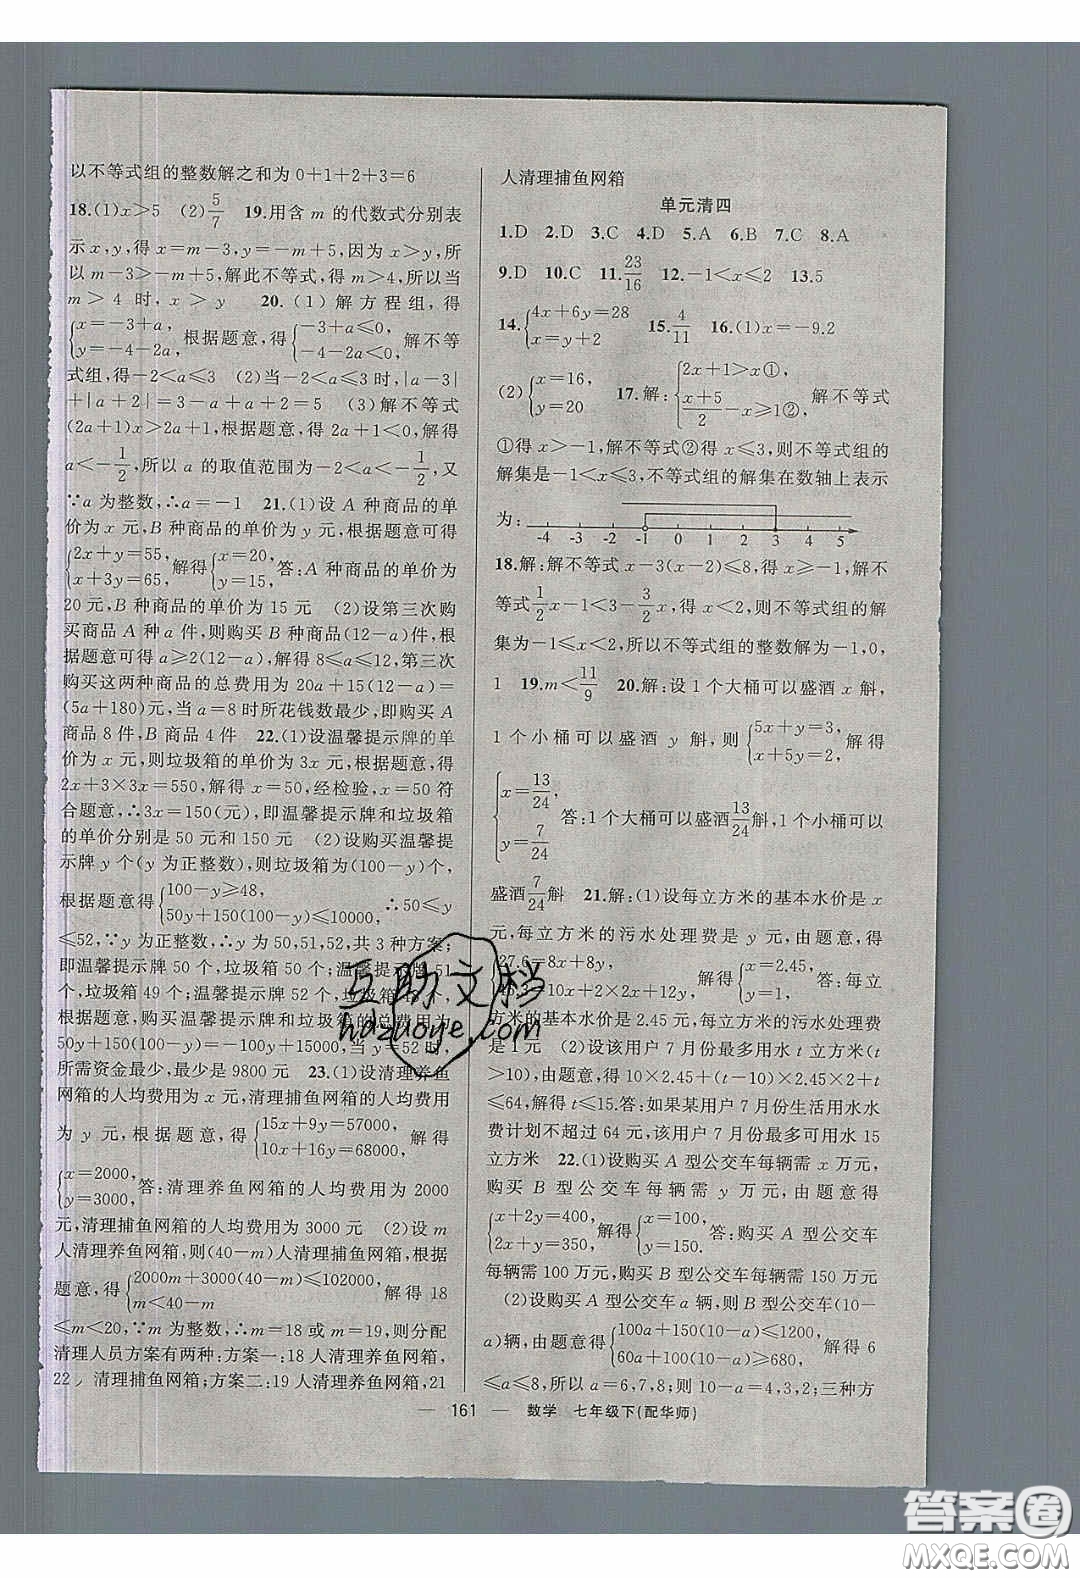 以不等式组的整数解之和为 0+1+2+3=6
18.(1)x>5 (2)5/7 19.用含 m 的代数式分别表
示 x,y,得 x=m-3,y=-m+5,因为 x>y,所
以 m-3>-m+5,解此不等式,得 m>4,所以当
m>4 时,x>y 20.(1)解方程组,得
{x=-3+a, y=-4-2a, 根据题意,得{-3+a≤0, -4-2a<0, 解不等
式组,得-2<a≤3 (2)当-2<a≤3 时,|a-3|
+|a+2|=3-a+a+2=5 (3)解不等式
(2a+1)x>2a+1,根据题意,得 2a+1<0,解得
a<-1/2,所以 a 的取值范围为-2<a<-1/2,又
∵a 为整数,∴a=-1 21.(1)设 A 种商品的单
价为 x 元,B 种商品的单价为 y 元,根据题意可得
{2x+y=55, x+3y=65, 解得{x=20, y=15, 答:A 种商品的单价为
20 元,B 种商品的单价为 15 元 (2)设第三次购
买商品 A 种 a 件,则购买 B 种商品(12-a)件,根
据题意可得 a≥2(12-a),解得 8≤a≤12,第三次
购买这两种商品的总费用为 20a+15(12-a)=
(5a+180)元,当 a=8 时所花钱数最少,即购买 A
商品 8 件,B 商品 4 件 22.(1)设温馨提示牌的单
价为 x 元,则垃圾箱的单价为 3x 元,根据题意,得
2x+3×3x=550,解得 x=50,经检验,x=50 符
合题意,∴3x=150(元),即温馨提示牌和垃圾箱
的单价分别是 50 元和 150 元 (2)设购买温馨提
示牌 y 个(y 为正整数),则垃圾箱为(100-y)个,
根据题意得{100-y≥48, 50y+150(100-y)≤10000, ∴50≤y
≤52,∵y 为正整数,∴y 为 50,51,52,共 3 种方案;
即温馨提示牌 50 个,垃圾箱 50 个;温馨提示牌 51
个,垃圾箱 49 个;温馨提示牌 52 个,垃圾箱 48 个,
根据题意,购买温馨提示牌和垃圾箱的总费用为
50y+150(100-y)=-100y+15000,当 y=52 时,
所需资金最少,最少是 9800 元 23.(1)设清理养鱼
网箱的人均费用为 x 元,清理捕鱼网箱的人均费用
为 y 元,根据题意,得{15x+9y=57000, 10x+16y=68000, 解得
{x=2000, y=3000, 答:清理养鱼网箱的人均费用为 2000
元,清理捕鱼网箱的人均费用为 3000 元 (2)设 m
人清理养鱼网箱,则(40-m)人清理捕鱼网箱,根据
题意,得{2000m+3000(40-m)≤102000, m<40-m 解得 18
≤m<20,∵m 为整数,∴m=18 或 m=19,则分配
清理人员方案有两种:方案一:18 人清理养鱼网箱,
22 人清理捕鱼网箱;方案二:19 人清理养鱼网箱,21
人清理捕鱼网箱
单元清四
1.D 2.D 3.C 4.D 5.A 6.B 7.C 8.A
9.D 10.C 11.23/16 12.-1<x≤2 13.5
14.{4x+6y=28 x=y+2 15.4/11 16.(1)x=-9.2
(2){x=16, y=20 17.解:{2x+1>x①, (x+5)/2-x≥1②, 解不等式
①得 x>-1,解不等式②得 x≤3,则不等式组的
解集是-1<x≤3,不等式组的解集在数轴上表示
为: -4 -3 -2 -1 0 1 2 3 4 5
18.解:解不等式 x-3(x-2)≤8,得 x≥-1,解不
等式1/2x-1<3-3/2x,得 x<2,则不等式组的解
集为-1≤x<2,所以不等式组的整数解为-1,0,
1 19.m<11/9 20.解:设 1 个大桶可以盛酒 x 斛,
1 个小桶可以盛酒 y 斛,则{5x+y=3, x+5y=2, 解得
{x=13/24, y=7/24 答:1 个大桶可以盛酒13/24斛,1 个小桶可以
盛酒7/24斛 21.解:(1)设每立方米的基本水价是 x
元,每立方米的污水处理费是 y 元,由题意,得
{27.6=8x+8y, 46.3=10x+2×2x+12y, 解得{x=2.45, y=1, 答:每立
方米的基本水价是 2.45 元,每立方米的污水处理费
是 1 元 (2)设该用户 7 月份最多用水 t 立方米(t
>10),由题意,得 10×2.45+(t-10)×4.9+t
≤64,解得 t≤15.答:如果某用户 7 月份生活用水水
费计划不超过 64 元,该用户 7 月份最多可用水 15
立方米 22.(1)设购买 A 型公交车每辆需 x 万元,
购买 B 型公交车每辆需 y 万元,由题意得
{x+2y=400, 2x+y=350, 解得{x=100, y=150. 答:购买 A 型公交车
每辆需 100 万元,购买 B 型公交车每辆需 150 万元
(2)设购买 A 型公交车 a 辆,则 B 型公交车(10-
a)辆,由题意得{100a+150(10-a)≤1200, 60a+100(10-a)≥680, 解得 6
≤a≤8,所以 a=6,7,8;则 10-a=4,3,2;三种方
— 161 — 数学 七年级下(配华师)
互助文档
hdzuoye.com
答案圈
MXQE.COM